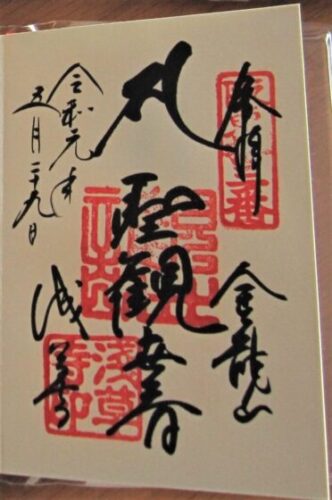 奉拝
金龍山
聖観世音
令和元年
五月二十九日
浅草寺
浅草
寺印